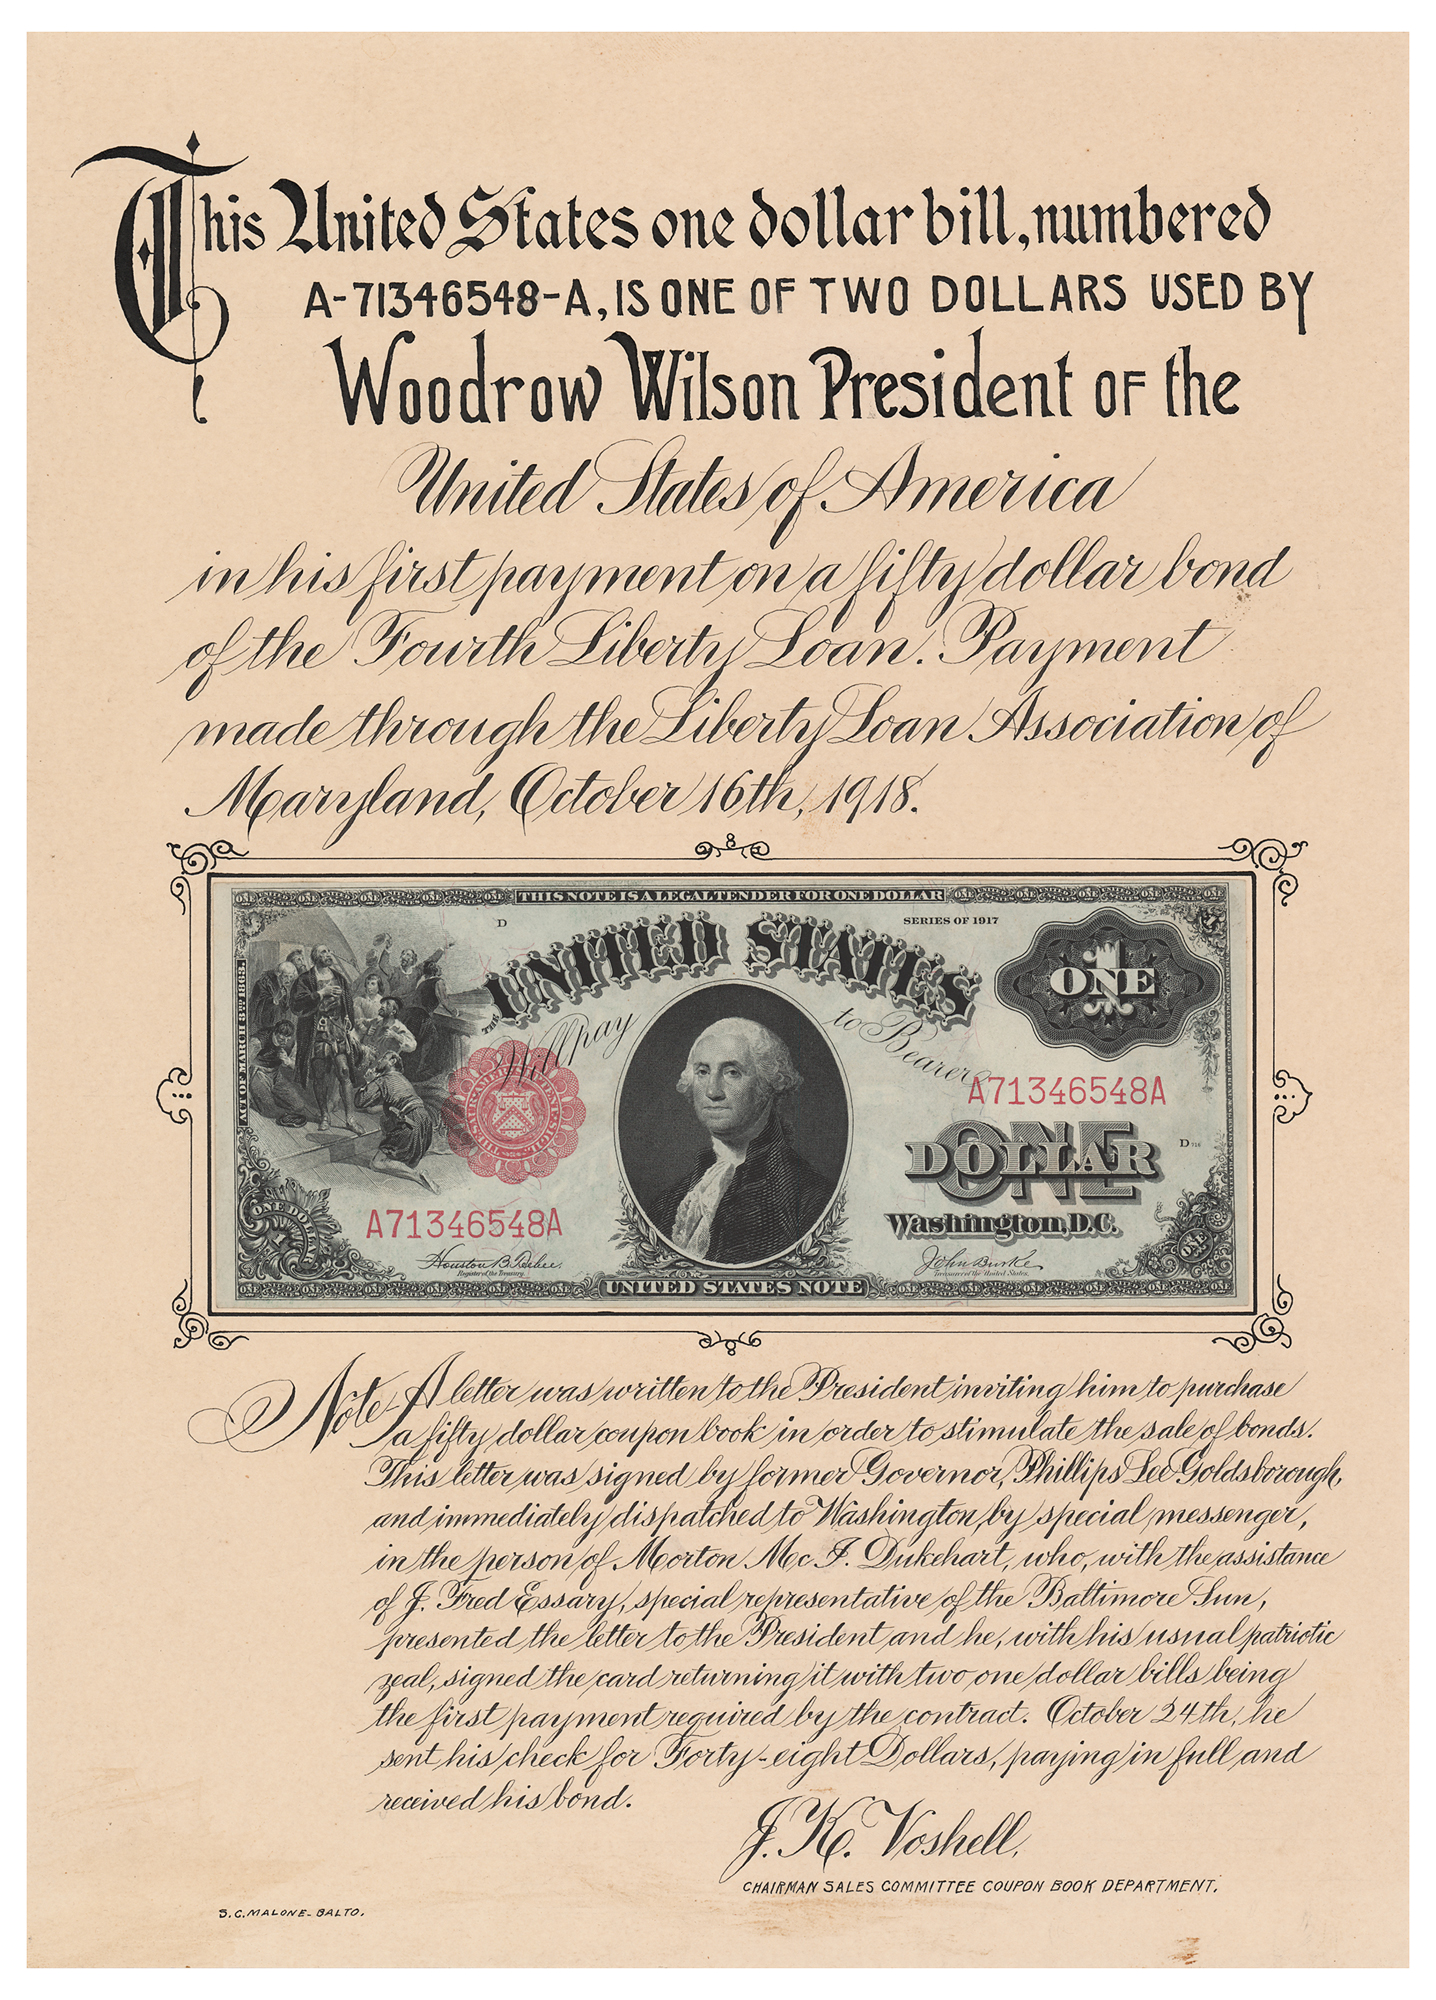 This United States one dollar bill, numbered
A-71346548-A, IS ONE OF TWO DOLLARS USED BY
Woodrow Wilson President OF the
United States of America
in his first payment on a fifty dollar bond
of the Fourth Liberty Loan. Payment
made through the Liberty Loan Association of
Maryland, October 16th, 1918.
THIS NOTE IS A LEGAL TENDER FOR ONE DOLLAR
D
SERIES OF 1917
THE UNITED STATES
ONE
ACT OF MARCH 3RD 1863.
Will pay
to Bearer
A71346548A
ONE
DOLLAR
D
A71346548A
Washington, D.C.
ONE DOLLAR
ONE
Houston B. Teehee.
Register of the Treasury.
John Burke
Treasurer of the United States.
UNITED STATES NOTE
Note - A letter was written to the President inviting him to purchase
a fifty dollar coupon book in order to stimulate the sale of bonds.
This letter was signed by former Governor, Phillips Lee Goldsborough,
and immediately dispatched to Washington, by special messenger,
in the person of Morton Mc I. Dukehart, who, with the assistance
of J. Fred Essary, special representative of the Baltimore Sun,
presented the letter to the President and he, with his usual patriotic
zeal, signed the card returning it with two one dollar bills being
the first payment required by the contract. October 24th, he
sent his check for Forty-eight Dollars, paying in full and
received his bond.
J. K. Voshell,
CHAIRMAN SALES COMMITTEE COUPON BOOK DEPARTMENT.
S. C. MALONE - BALTO.